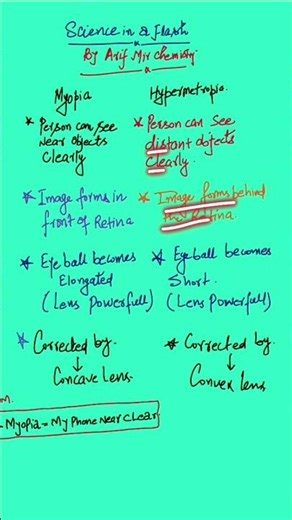 Science in a Flash
By Arif Mir Chemistry.
Myopia
* Person can see
Near objects
Clearly
* Image forms in
front of Retina
* Eye ball becomes
Elongated
(Lens Powerfull)
* Corrected by.
Concave Lens.
Hypermetropia.
* Person can see
distant objects
clearly.
* Image forms behind
Retina.
* Eye ball becomes
Short.
(Lens Powerfull)
* Corrected by.
Convex lens
- Myopia = My Phone Near Clear